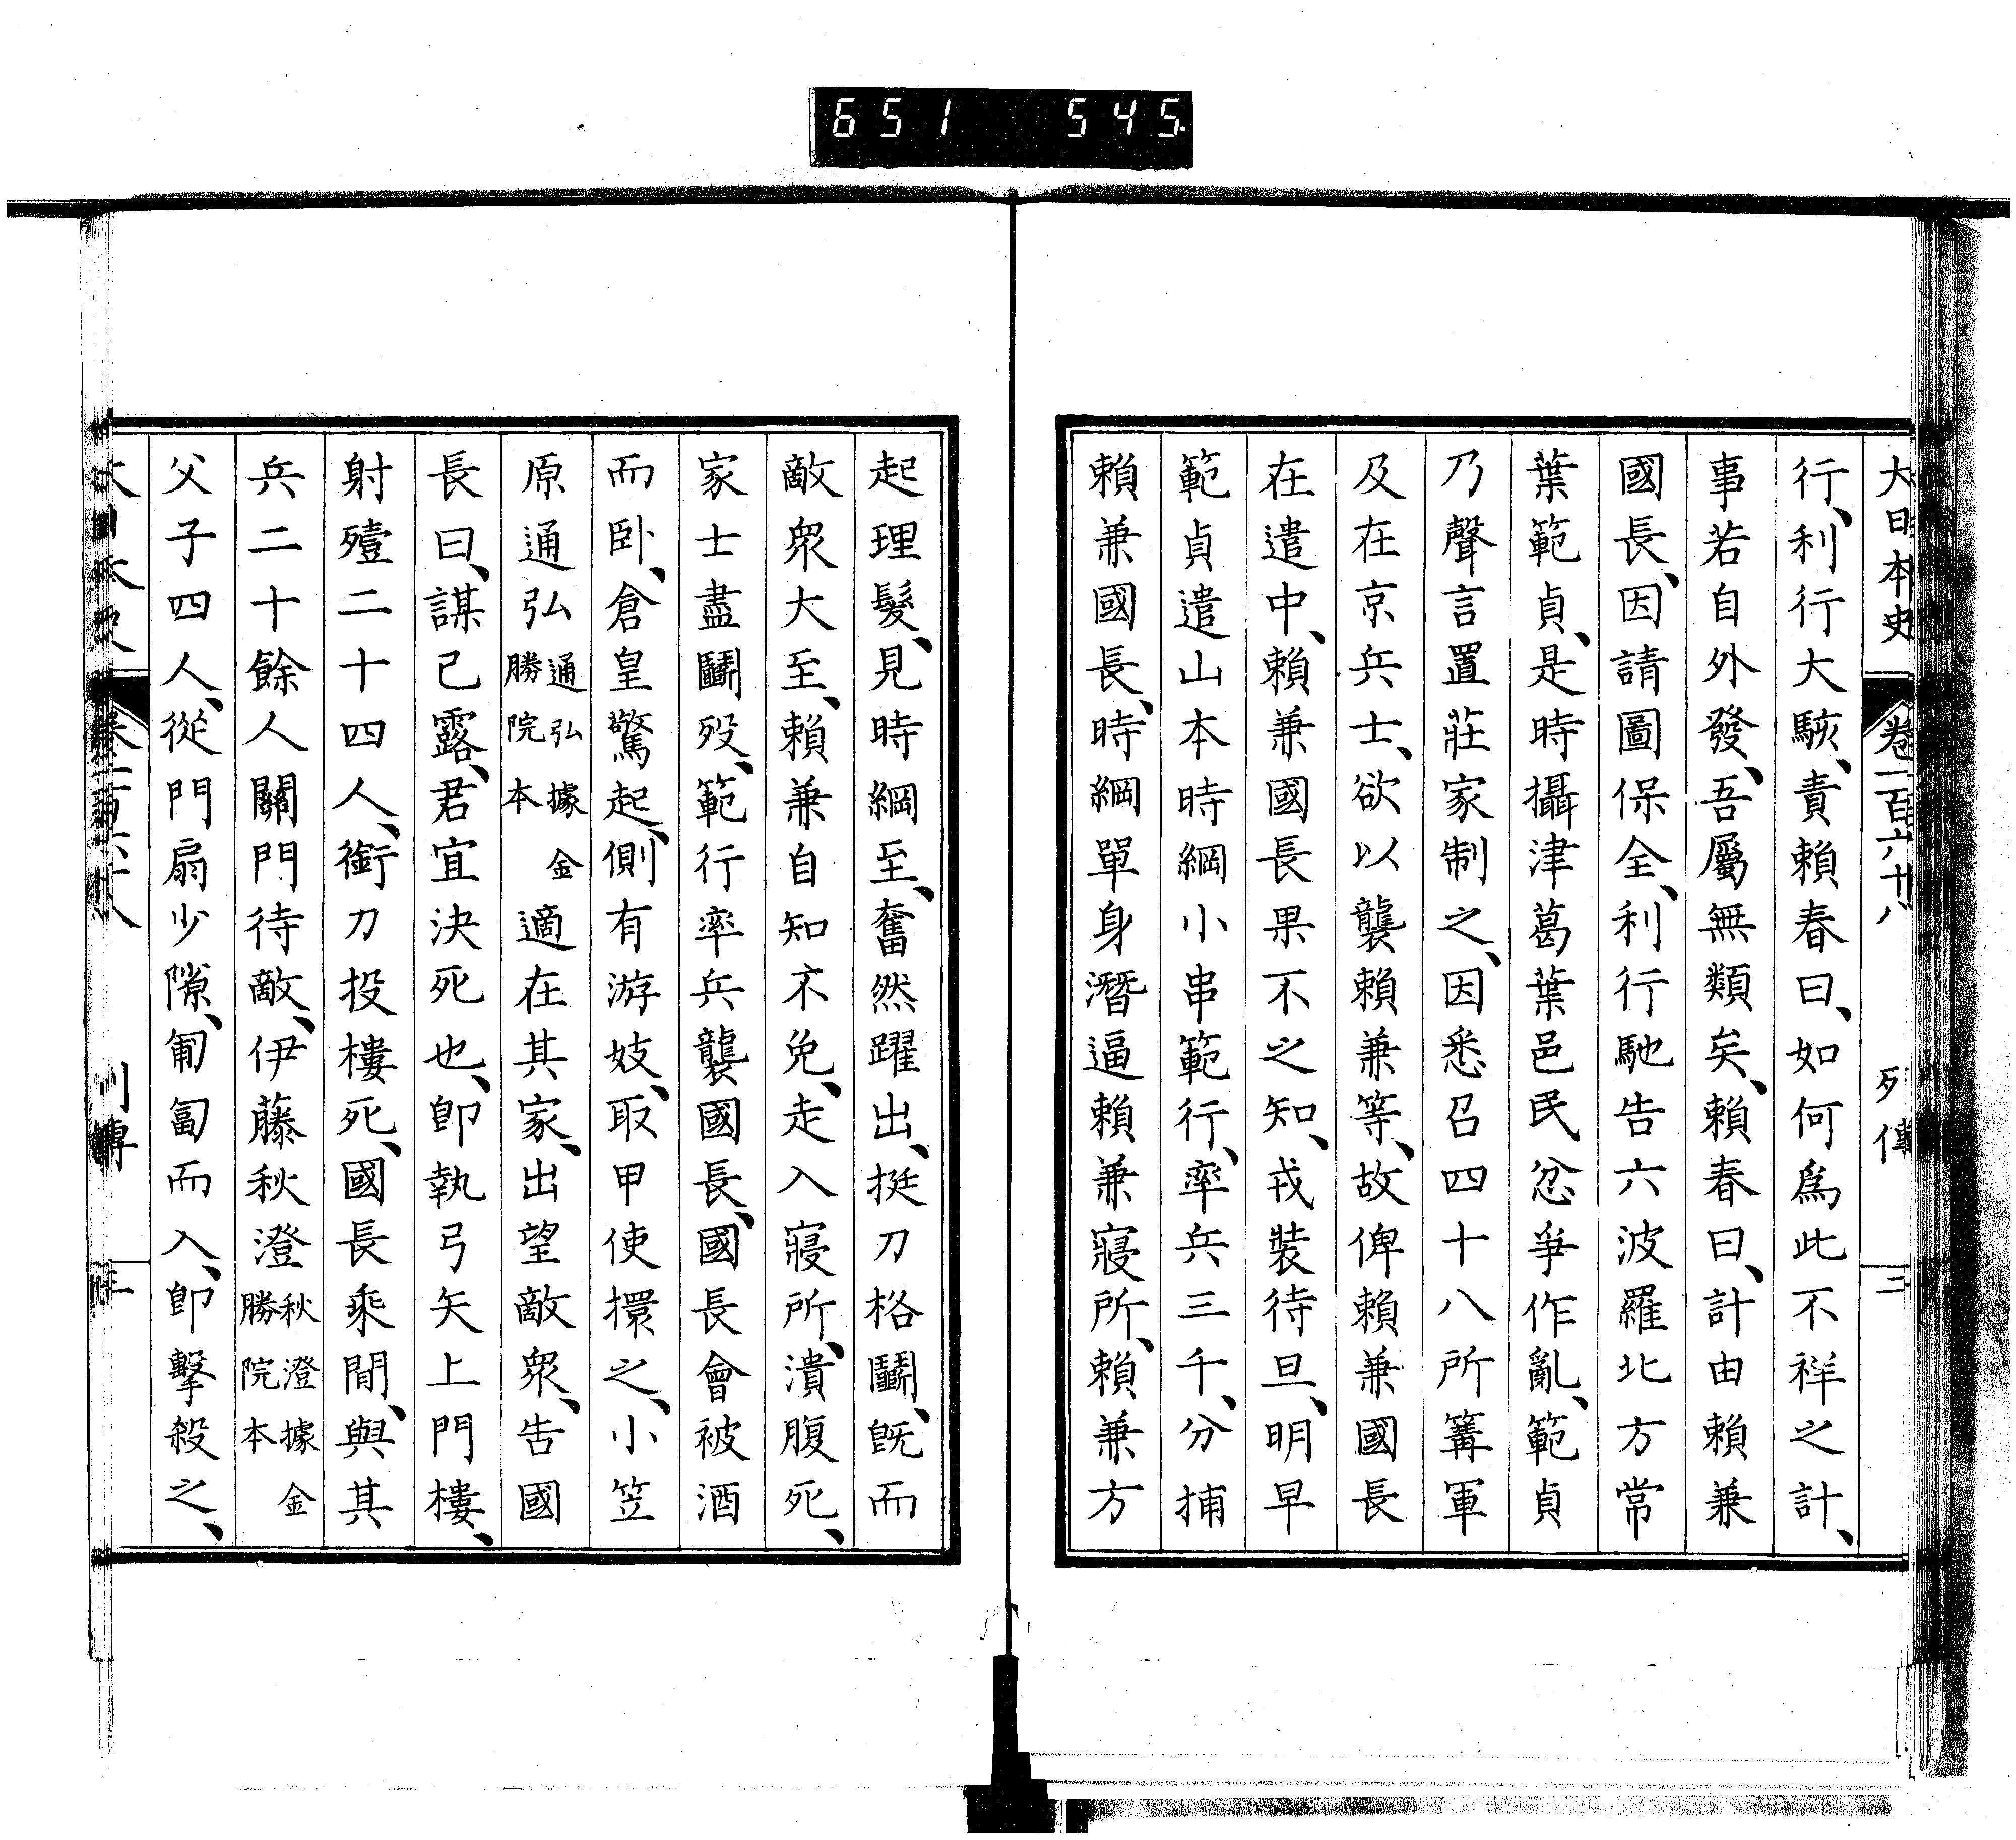 651 545
大日本史 卷一百六十八 列傳 三
行、利行大駭、責賴春曰、如何爲此不祥之計、
事若自外發、吾屬無類矣、賴春曰、計由賴兼
國長、因請圖保全、利行馳告六波羅北方常
葉範貞、是時攝津葛葉邑民忿爭作亂、範貞
乃聲言置莊家制之、因悉召四十八所篝軍
及在京兵士、欲以襲賴兼等、故俾賴兼國長
在遣中、賴兼國長果不之知、戎裝待旦、明早
範貞遣山本時綱小串範行、率兵三千、分捕
賴兼國長、時綱單身潛逼賴兼寢所、賴兼方
起理髮、見時綱至、奮然躍出、挺刀格鬭、旣而
敵衆大至、賴兼自知不免、走入寢所、潰腹死、
家士盡鬭歿、範行率兵襲國長、國長會被酒
而臥、倉皇驚起、側有游妓、取甲使擐之、小笠
原通弘通弘據金勝院本適在其家、出望敵衆、告國
長曰、謀已露、君宜決死也、卽執弓矢上門樓、
射殪二十四人、銜刀投樓死、國長乘間、與其
兵二十餘人關門待敵、伊藤秋澄秋澄據金勝院本
父子四人、從門扇少隙、匍匐而入、卽擊殺之、